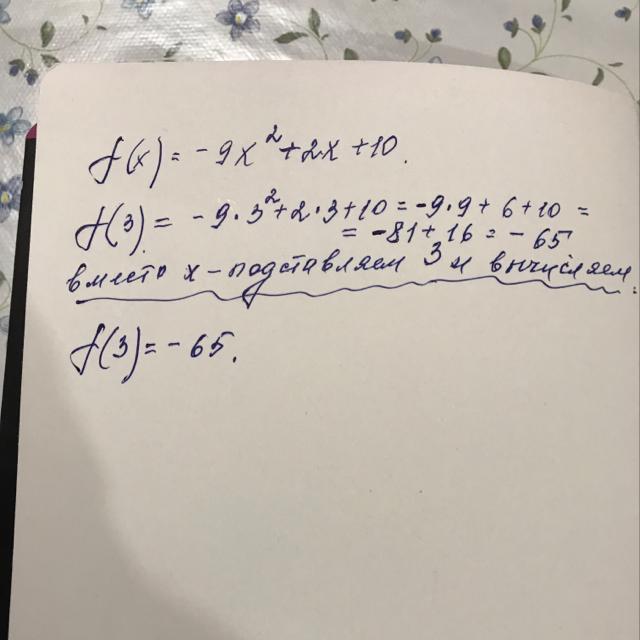 f(x) = -9x² + 2x + 10.
f(3) = -9·3² + 2·3 + 10 = -9·9 + 6 + 10 =
= -81 + 16 = -65
вместо x - подставляем 3 и вычисляем.
f(3) = -65.